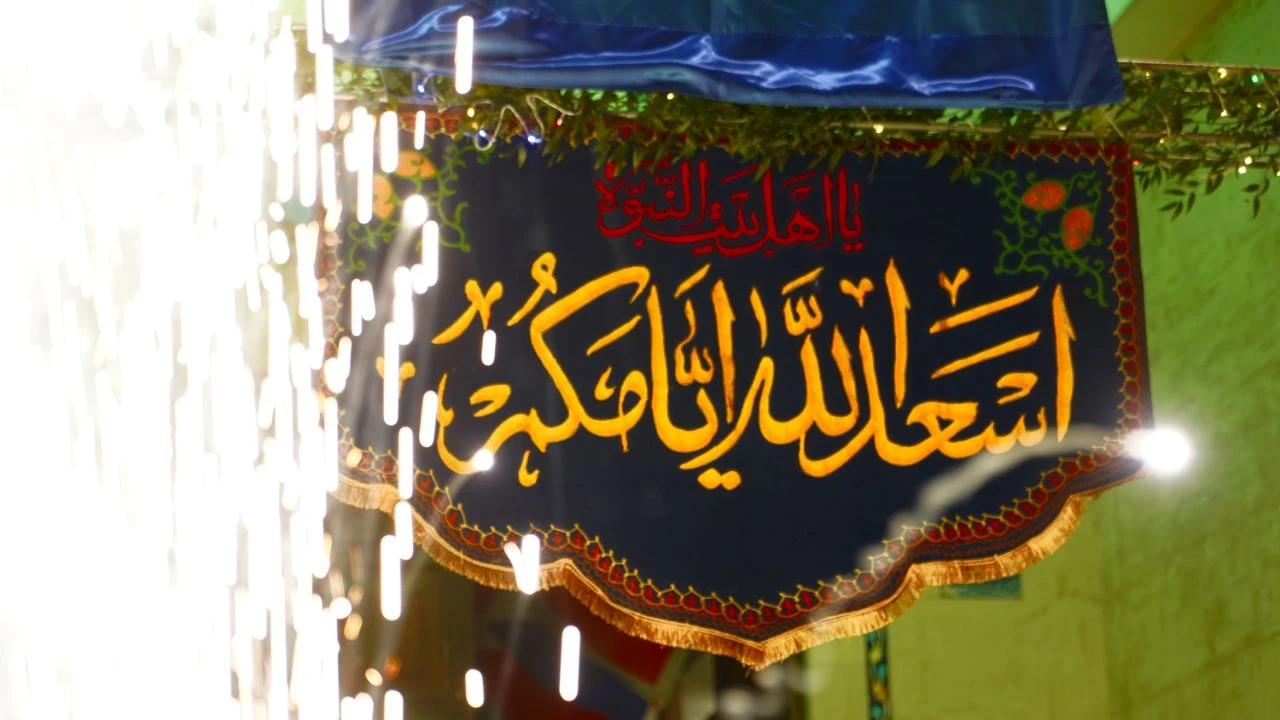 یا اهل بیت النبوة
اسعد الله ایامکم